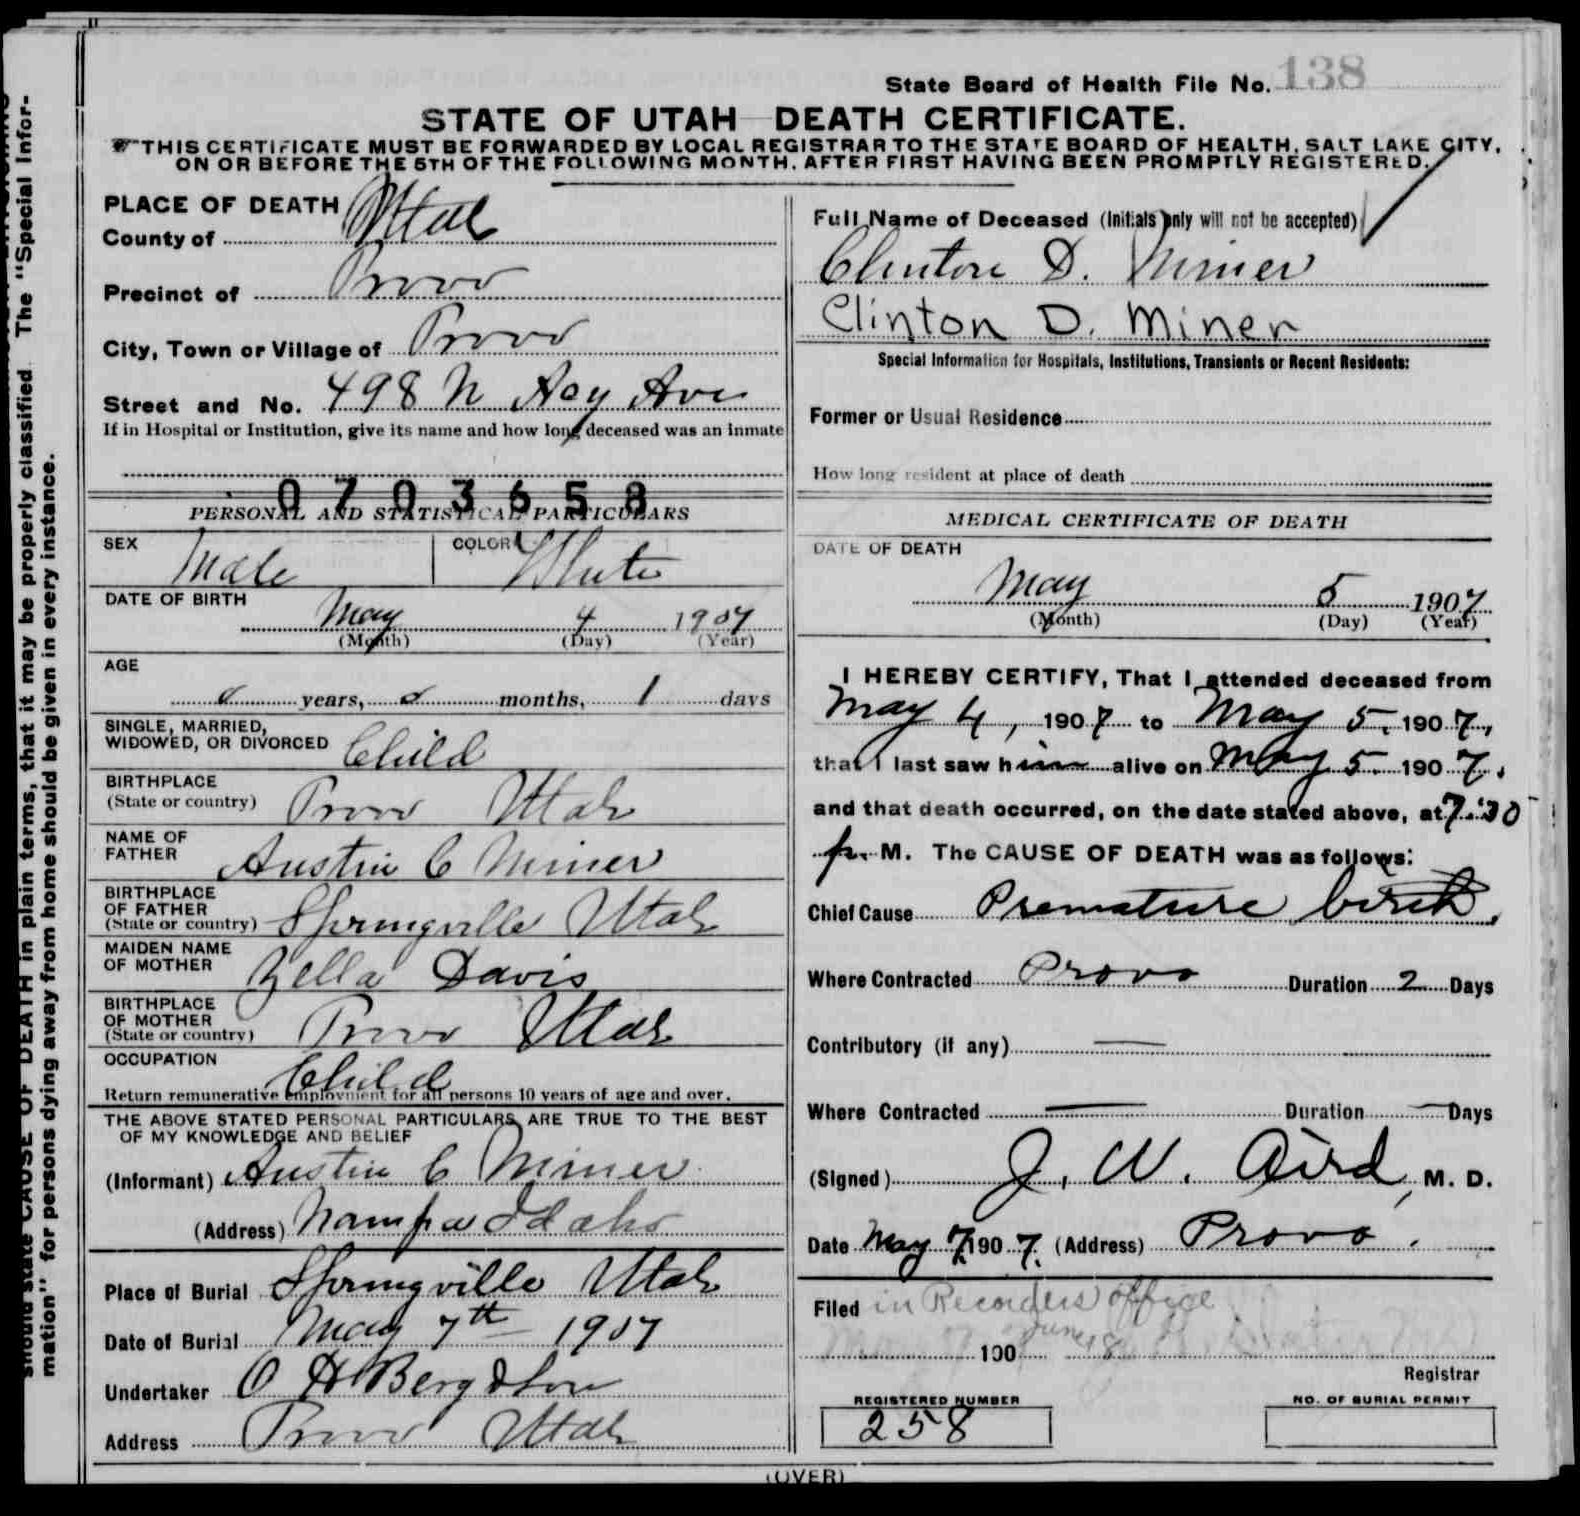 State Board of Health File No. 138
STATE OF UTAH DEATH CERTIFICATE.
THIS CERTIFICATE MUST BE FORWARDED BY LOCAL REGISTRAR TO THE STATE BOARD OF HEALTH, SALT LAKE CITY,
ON OR BEFORE THE 5TH OF THE FOLLOWING MONTH, AFTER FIRST HAVING BEEN PROMPTLY REGISTERED.
PLACE OF DEATH
County of Utah
Precinct of Provo
City, Town or Village of Provo
Street and No. 498 N Acy Ave
If in Hospital or Institution, give its name and how long deceased was an inmate
0703658
PERSONAL AND STATISTICAL PARTICULARS
SEX Male COLOR White
DATE OF BIRTH
May 4 1907
(Month) (Day) (Year)
AGE
0 years, 0 months, 1 days
SINGLE, MARRIED,
WIDOWED, OR DIVORCED Child
BIRTHPLACE
(State or country) Provo Utah
NAME OF
FATHER Austin C Miner
BIRTHPLACE
OF FATHER
(State or country) Springville Utah
MAIDEN NAME
OF MOTHER Zella Davis
BIRTHPLACE
OF MOTHER
(State or country) Provo Utah
OCCUPATION
Child
Return remunerative employment for all persons 10 years of age and over.
THE ABOVE STATED PERSONAL PARTICULARS ARE TRUE TO THE BEST
OF MY KNOWLEDGE AND BELIEF
(Informant) Austin C Miner
(Address) Nampa Idaho
Place of Burial Springville Utah
Date of Burial May 7th 1907
Undertaker O H Berg & Son
Address Provo Utah
Full Name of Deceased (Initials only will not be accepted)
Clinton D. Miner
Clinton D. Miner
Special Information for Hospitals, Institutions, Transients or Recent Residents:
Former or Usual Residence
How long resident at place of death
MEDICAL CERTIFICATE OF DEATH
DATE OF DEATH
May 5 1907
(Month) (Day) (Year)
I HEREBY CERTIFY, That I attended deceased from
May 4, 1907 to May 5, 1907,
that I last saw him alive on May 5. 1907,
and that death occurred, on the date stated above, at 7:30
p. M. The CAUSE OF DEATH was as follows:
Chief Cause Premature birth.
Where Contracted Provo Duration 2 Days
Contributory (if any) —
Where Contracted — Duration — Days
(Signed) J. W. Aird, M. D.
Date May 7, 1907. (Address) Provo.
Filed in Recorders office
June 190
Registrar
REGISTERED NUMBER NO. OF BURIAL PERMIT
258
(OVER)
should state CAUSE OF DEATH in plain terms, that it may be properly classified. The "Special Infor-
mation" for persons dying away from home should be given in every instance.